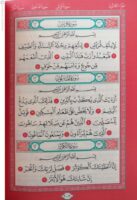 سُورَةُ قُرَيْشٍ
بِسْمِ ٱللَّهِ ٱلرَّحْمَٰنِ ٱلرَّحِيمِ
لِإِيلَٰفِ قُرَيْشٍ ١ إِۦلَٰفِهِمْ رِحْلَةَ ٱلشِّتَآءِ وَٱلصَّيْفِ
٢ فَلْيَعْبُدُوا۟ رَبَّ هَٰذَا ٱلْبَيْتِ ٣ ٱلَّذِىٓ أَطْعَمَهُم
مِّن جُوعٍ وَءَامَنَهُم مِّنْ خَوْفٍۭ ٤
سُورَةُ المَاعُونِ
بِسْمِ ٱللَّهِ ٱلرَّحْمَٰنِ ٱلرَّحِيمِ
أَرَءَيْتَ ٱلَّذِى يُكَذِّبُ بِٱلدِّينِ ١ فَذَٰلِكَ ٱلَّذِى
يَدُعُّ ٱلْيَتِيمَ ٢ وَلَا يَحُضُّ عَلَىٰ طَعَامِ ٱلْمِسْكِينِ ٣
فَوَيْلٌ لِّلْمُصَلِّينَ ٤ ٱلَّذِينَ هُمْ عَن صَلَاتِهِمْ سَاهُونَ ٥
ٱلَّذِينَ هُمْ يُرَآءُونَ ٦ وَيَمْنَعُونَ ٱلْمَاعُونَ ٧
سُورَةُ الكَوْثَرِ
بِسْمِ ٱللَّهِ ٱلرَّحْمَٰنِ ٱلرَّحِيمِ
إِنَّآ أَعْطَيْنَٰكَ ٱلْكَوْثَرَ ١ فَصَلِّ لِرَبِّكَ وَٱنْحَرْ
٢ إِنَّ شَانِئَكَ هُوَ ٱلْأَبْتَرُ ٣